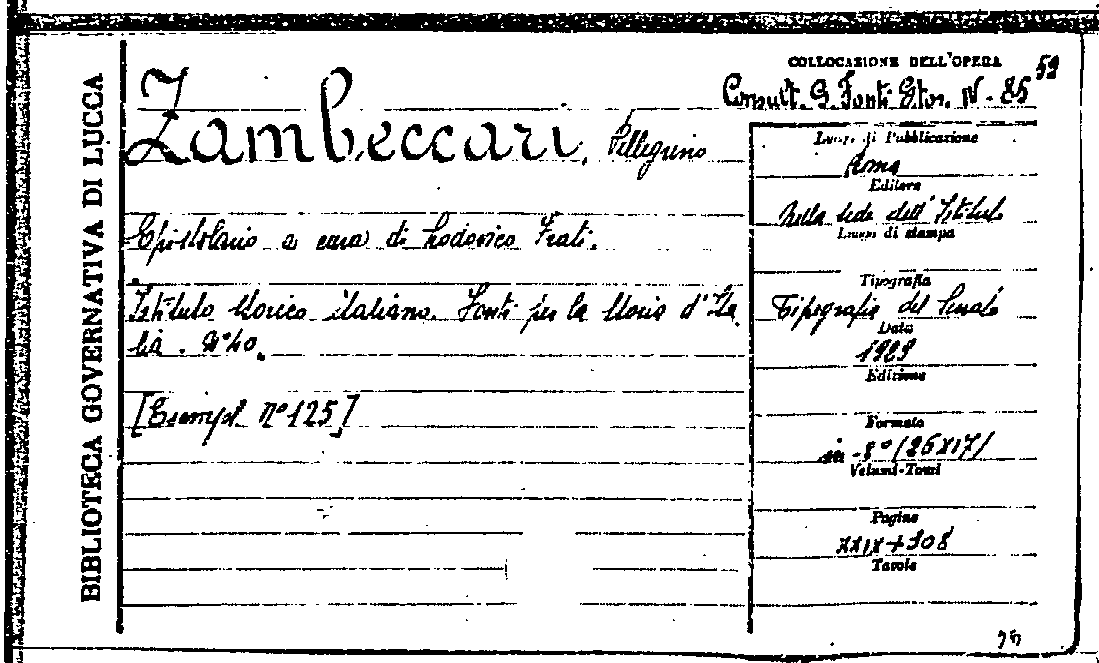 BIBLIOTECA GOVERNATIVA DI LUCCA
COLLOCAZIONE DELL'OPERA
Consult. G. Fonti Stor. N. 85 59
Zambeccari, Pellegrino
Epistolario a cura di Lodovico Frati.
Istituto storico italiano. Fonti per la Storia d'Ita
lia. N° 40.
[Esempl. N° 125]
Luogo di Pubblicazione
Roma
Editore
Nella sede dell'Istituto
Luogo di stampa
Tipografia
Tipografia del Senato
Data
1929
Edizione
Formato
in-8° (25x17)
Volumi-Tomi
Pagine
XXIX+308
Tavole